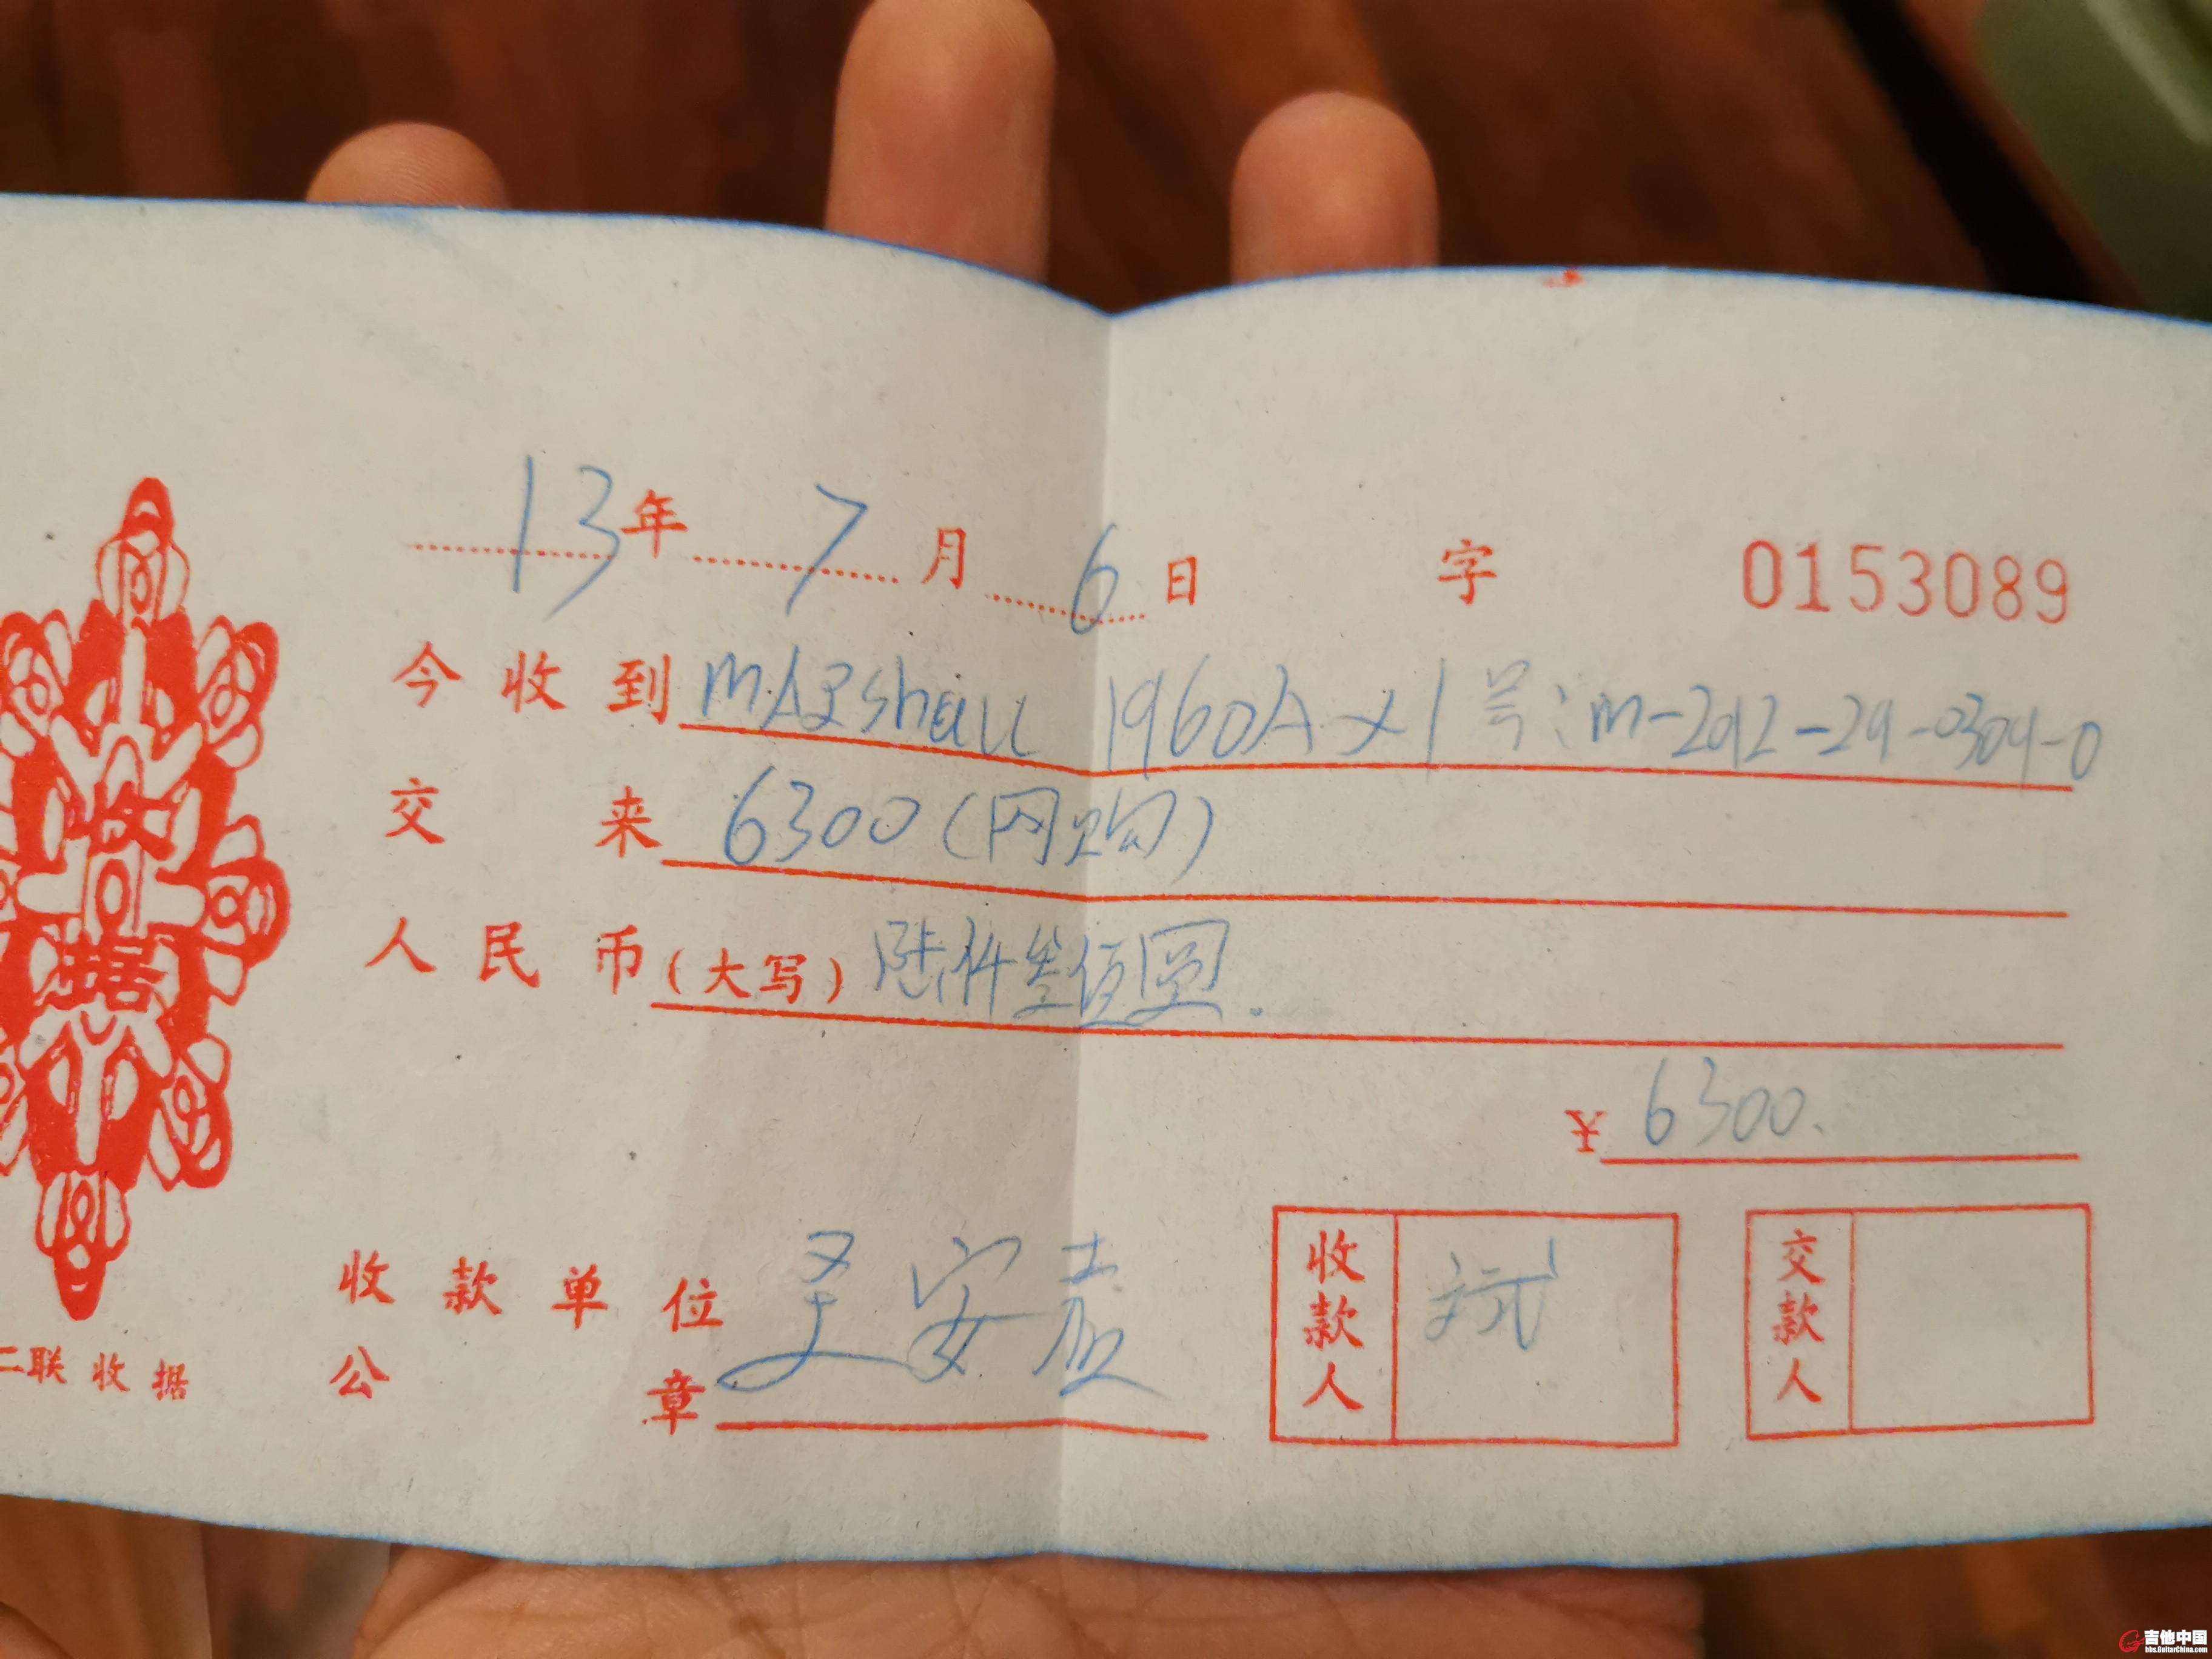 13年 7月 6日 字 0153089
今收到 MARshall 1960A x1 号: m-2012-29-0304-0
交来 6300(网购)
人民币(大写) 陆仟叁佰圆.
¥ 6300.
收款单位 圣安
公章
收款人
交款人
收据
二联收据
吉他中国
bbs.GuitarChina.com